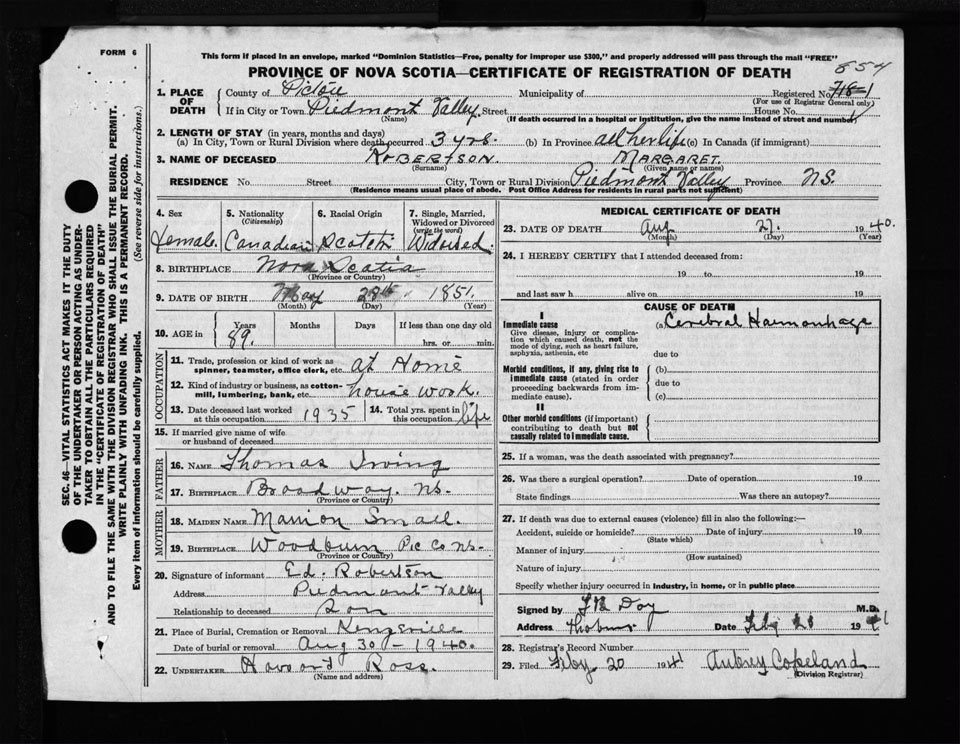 FORM 6
This form if placed in an envelope, marked "Dominion Statistics—Free, penalty for improper use $300," and properly addressed will pass through the mail "FREE"
854
PROVINCE OF NOVA SCOTIA—CERTIFICATE OF REGISTRATION OF DEATH
1. PLACE OF DEATH
County of Pictou Municipality of Registered No. 718-1
(For use of Registrar General only)
If in City or Town Piedmont Valley Street House No.
(Name) (If death occurred in a hospital or institution, give the name instead of street and number)
2. LENGTH OF STAY (in years, months and days)
(a) In City, Town or Rural Division where death occurred 3 yrs. (b) In Province all her life (c) In Canada (if immigrant)
3. NAME OF DECEASED ROBERTSON. MARGARET.
(Surname) (Given name or names)
RESIDENCE No. Street City, Town or Rural Division Piedmont Valley Province NS.
(Residence means usual place of abode. Post Office Address for residents in rural parts not sufficient)
4. Sex
Female.
5. Nationality (Citizenship)
Canadian
6. Racial Origin
Scotch
7. Single, Married, Widowed or Divorced (write the word)
Widowed.
8. BIRTHPLACE Nova Scotia
(Province or Country)
9. DATE OF BIRTH May 28th 1851.
(Month) (Day) (Year)
10. AGE in Years Months Days If less than one day old
89. hrs. or min.
OCCUPATION
11. Trade, profession or kind of work as spinner, teamster, office clerk, etc. At Home
12. Kind of industry or business, as cotton-mill, lumbering, bank, etc. house work.
13. Date deceased last worked at this occupation 1935
14. Total yrs. spent in this occupation life
15. If married give name of wife or husband of deceased
FATHER
16. NAME Thomas Irving
17. BIRTHPLACE Broadway. NS.
(Province or Country)
MOTHER
18. MAIDEN NAME Marion Small.
19. BIRTHPLACE Woodburn Pic Co NS-
(Province or Country)
20. Signature of informant Ed. Robertson
Address Piedmont Valley
Relationship to deceased Son
21. Place of Burial, Cremation or Removal Kingsville
Date of burial or removal Aug 30 - 1940.
22. UNDERTAKER Howard Ross.
(Name and address)
MEDICAL CERTIFICATE OF DEATH
23. DATE OF DEATH Aug 27. 1940.
(Month) (Day) (Year)
24. I HEREBY CERTIFY that I attended deceased from:
19 to 19
and last saw h alive on 19
CAUSE OF DEATH
I
Immediate cause (a) Cerebral Haemorrhage
Give disease, injury or complication which caused death, not the mode of dying, such as heart failure, asphyxia, asthenia, etc
due to
Morbid conditions, if any, giving rise to immediate cause (stated in order proceeding backwards from immediate cause).
(b)
due to
(c)
II
Other morbid conditions (if important) contributing to death but not causally related to immediate cause.
25. If a woman, was the death associated with pregnancy?
26. Was there a surgical operation? Date of operation 19
State findings Was there an autopsy?
27. If death was due to external causes (violence) fill in also the following:—
Accident, suicide or homicide? Date of injury 19
(State which)
Manner of injury
(How sustained)
Nature of injury
Specify whether injury occurred in industry, in home, or in public place
Signed by M.D.
Address Thorburn Date Feby 1941
28. Registrar's Record Number
29. Filed Feby 20 1941 Aubrey Copeland
(Division Registrar)
SEC. 46—VITAL STATISTICS ACT MAKES IT THE DUTY
OF THE UNDERTAKER OR PERSON ACTING AS UNDER-
TAKER TO OBTAIN ALL THE PARTICULARS REQUIRED
IN THE "CERTIFICATE OF REGISTRATION OF DEATH"
AND TO FILE THE SAME WITH THE DIVISION REGISTRAR WHO SHALL ISSUE THE BURIAL PERMIT.
WRITE PLAINLY WITH UNFADING INK. THIS IS A PERMANENT RECORD.
Every item of information should be carefully supplied. (See reverse side for instructions.)